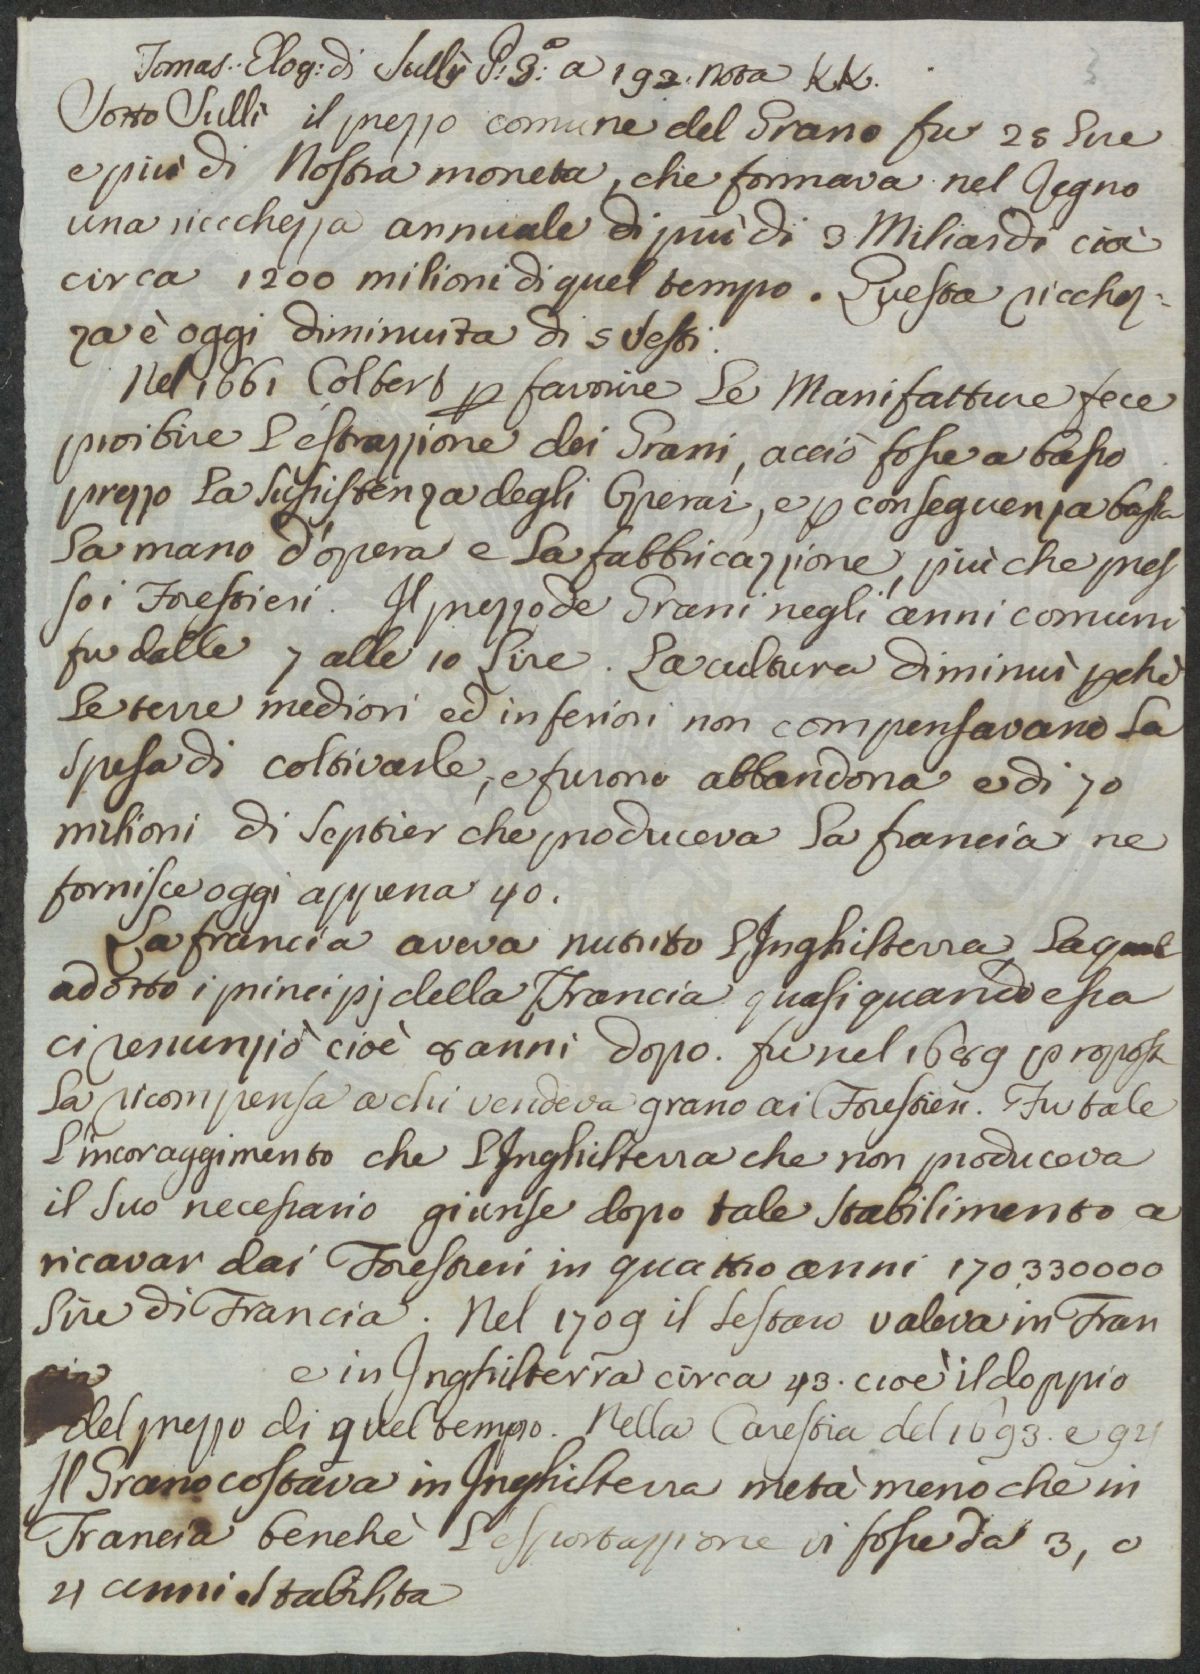 Tomas.. Elog: di Sullÿ P: 3:a a 192. Nota KK.
3
Sotto Sullì il prezzo comune del Grano fu 28 Lire
e più di Nostra moneta, che formava nel Regno
una riccchezza annuale di più di 3 Miliardi cioè
circa 1200 milioni di quel tempo. Questa ricchez-
za è oggi diminuita di 5 sesti.
Nel 1661 Colbert p favorire Le Manifatture fece
proibire L'estrazzione dei Grani, acciò fosse a basso
prezzo La sussistenza degli Operai, e p conseguenza bassa
La mano d'opera e La fabbricazzione, più che pres
so i Forestieri. Il prezzo de Grani negli anni comuni
fu dalle 7 alle 10 Lire. La cultura diminuì pchè
Le terre mediori ed inferiori non compensavano La
spesa di coltivarle, e furono abbandona e di 70
milioni di septier che produceva La francia ne
fornisce oggi appena 40.
La francia aveva nutrito L'Inghilterra, La quale
adotto i principj della Francia quasi quando essa
ci renunziò cioè 8 anni dopo. fu nel 1689 propost
La ricompensa a chi vendeva grano ai Forestieri. Fu tale
L'incoraggimento che L'Inghilterra che non produceva
il suo necessario giunse dopo tale stabilimento a
ricavar dai Forestieri in quattro anni 170330000
Lire di Francia. Nel 1709 il sestaro valeva in Fran
cia e in Inghilterra circa 43. cioè il doppio
del prezzo di quel tempo. Nella Carestia del 1693. e 94
Il Grano costava in Inghilterra metà meno che in
Francia benchè L'esportazzione vi fosse da 3, o
4 anni stabilita